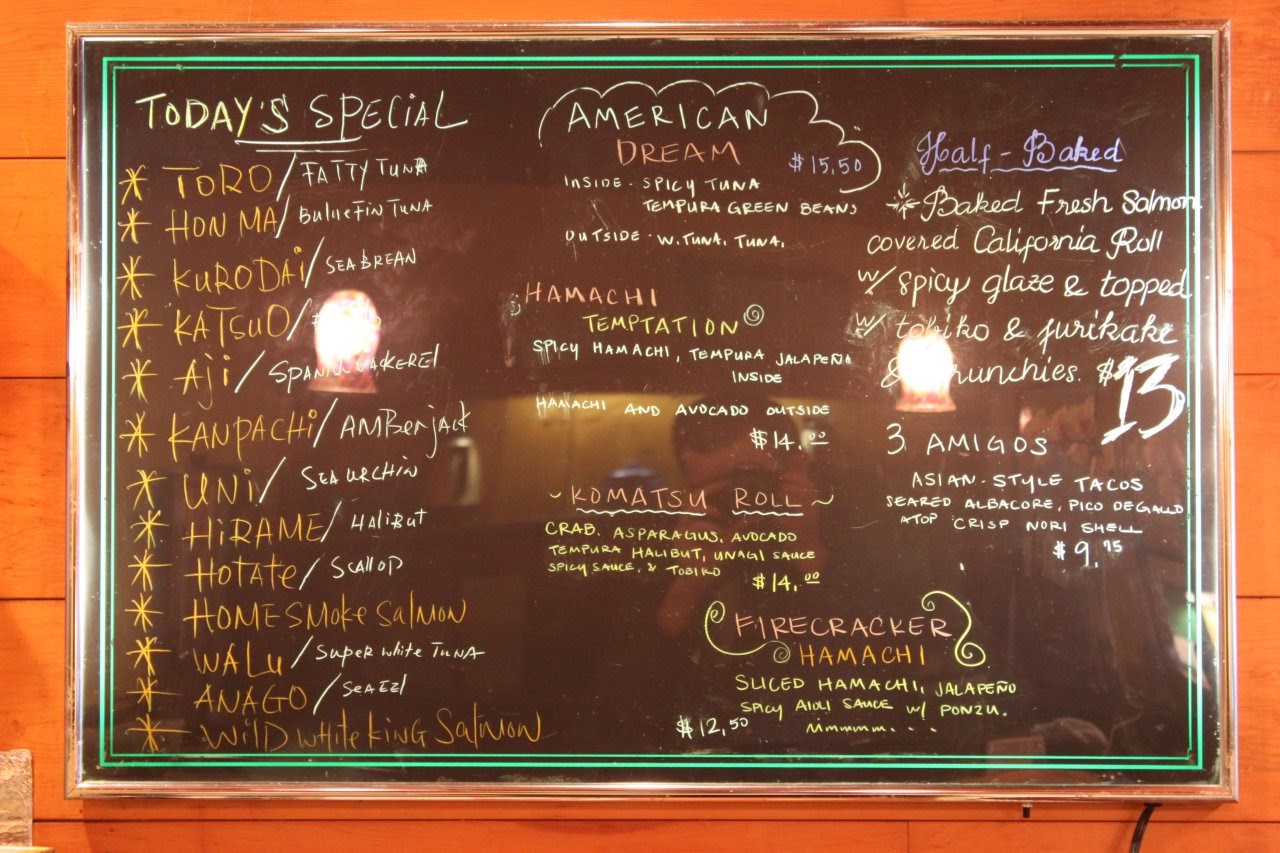 TODAY'S SPECIAL
* TORO / FATTY TUNA
* HON MA / BULUEFIN TUNA
* KURODAI / SEA BREAN
* KATSUO /
* AJI / SPANISH MACKEREL
* KANPACHI / AMBERJACK
* UNI / SEA URCHIN
* HIRAME / HALIBUT
* HOTATE / SCALLOP
* HOMESMOKE SALMON
* WALU / SUPER WHITE TUNA
* ANAGO / SEA EEL
* WILD WHITE KING SALMON
AMERICAN
DREAM $15.50
INSIDE - SPICY TUNA
TEMPURA GREEN BEANS
OUTSIDE - W. TUNA, TUNA.
HAMACHI
TEMPTATION
SPICY HAMACHI, TEMPURA JALAPEÑO
INSIDE
HAMACHI AND AVOCADO OUTSIDE
$14.00
~ KOMATSU ROLL ~
CRAB, ASPARAGUS, AVOCADO
TEMPURA HALIBUT, UNAGI SAUCE
SPICY SAUCE, & TOBIKO $14.00
FIRECRACKER
HAMACHI
SLICED HAMACHI, JALAPEÑO
SPICY AIOLI SAUCE W/ PONZU.
$12.50 Mmmmm...
Half-Baked
* Baked Fresh Salmon
covered California Roll
w/ spicy glaze & topped
w/ tobiko & furikake
& crunchies. $13
3 AMIGOS
ASIAN-STYLE TACOS
SEARED ALBACORE, PICO DE GALLO
ATOP CRISP NORI SHELL
$9.75